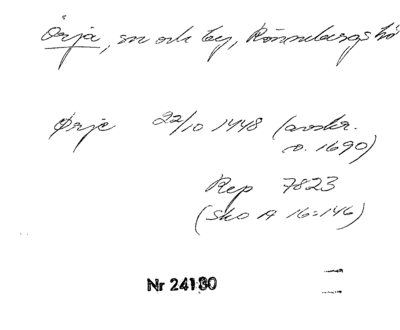 Örja, sn och by, Rönnebergs hd
Ørje 22/10 1448 (avskr.
o. 1690)
Rep 7823
(Sko A 16:146)
Nr 24180